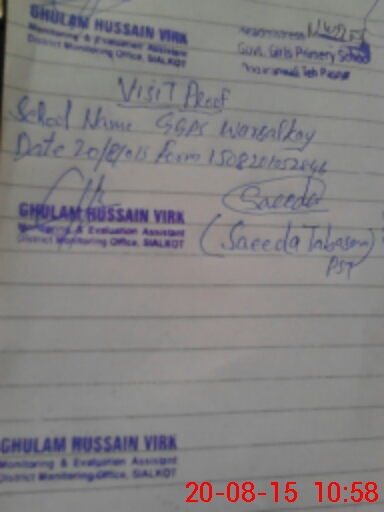 GHULAM HUSSAIN VIRK
Monitoring & Evaluation Assistant
District Monitoring Office, SIALKOT
Headmistress
Govt. Girls Primary School
Visit Proof
School Name GGPS
Date 20/8/015 Form 1508201052846
Saeeda
GHULAM HUSSAIN VIRK
Monitoring & Evaluation Assistant
District Monitoring Office, SIALKOT
(Saeeda Tabasam)
PST
GHULAM HUSSAIN VIRK
Monitoring & Evaluation Assistant
District Monitoring Office, SIALKOT
20-08-15 10:58